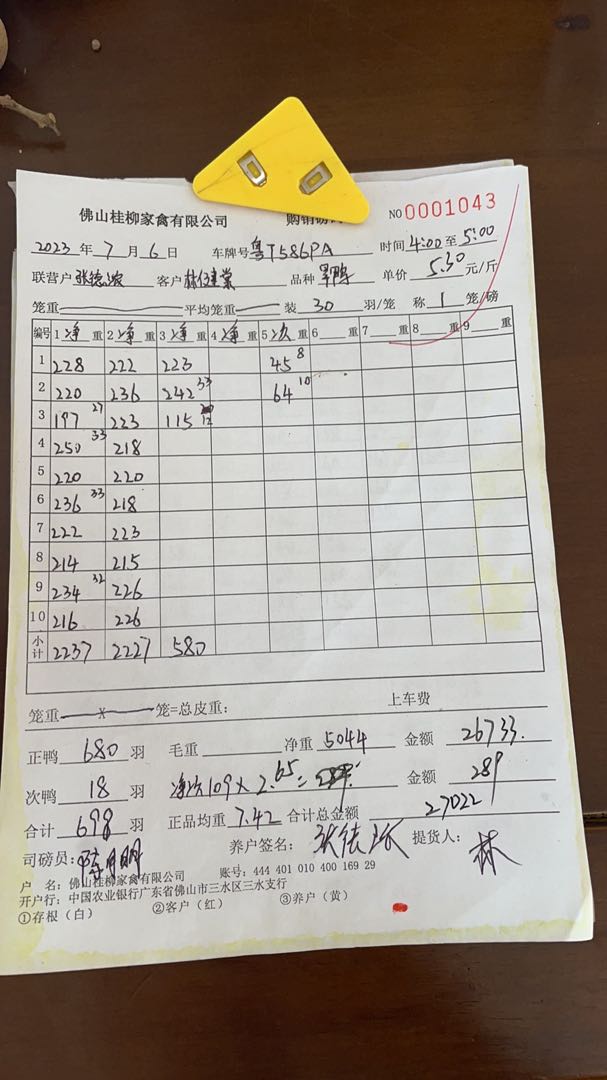 佛山桂柳家禽有限公司 购销磅 NO 0001043
2023年7月6日 车牌号 粤T586PA 时间 4:00至5:00
联营户 张德 客户 林 品种 鸭 单价 5.30元/斤
笼重 平均笼重 装30羽/笼 称1笼/磅
编号 1净重 2净重 3净重 4净重 5次重 6重 7重 8重 9重
1 228 222 223 45 8
2 220 236 242 33 64 10
3 197 27 223 115 12
4 250 33 218
5 220 220
6 236 33 218
7 222 223
8 214 215
9 234 32 226
10 216 226
小计 2237 2227 580
笼重 x 笼=总皮重: 上车费
正鸭 680羽 毛重 净重 5044 金额 26733.
次鸭 18羽 净次109×2.65= 金额 289
合计 698羽 正品均重 7.42 合计总金额 27022
司磅员: 养户签名: 张德 提货人: 林
户 名: 佛山桂柳家禽有限公司 账号: 444 401 010 400 169 29
开户行: 中国农业银行广东省佛山市三水区三水支行
①存根(白) ②客户(红) ③养户(黄)